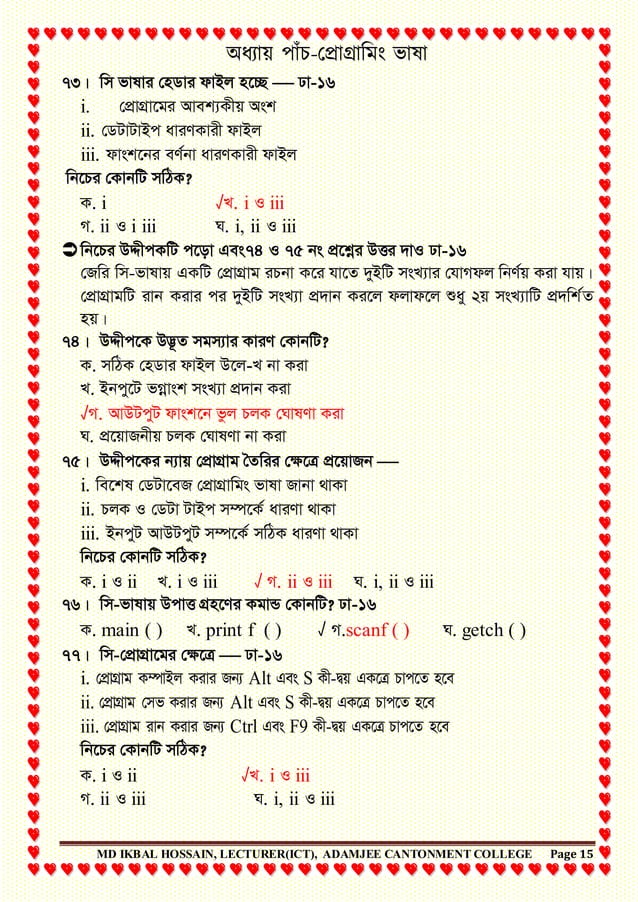 অধ্যায় পাঁচ-প্রোগ্রামিং ভাষা
৭৩। সি ভাষার হেডার ফাইল হচ্ছে — ঢা-১৬
i. প্রোগ্রামের আবশ্যকীয় অংশ
ii. ডেটাটাইপ ধারণকারী ফাইল
iii. ফাংশনের বর্ণনা ধারণকারী ফাইল
নিচের কোনটি সঠিক?
ক. i √খ. i ও iii
গ. ii ও i iii ঘ. i, ii ও iii
➲ নিচের উদ্দীপকটি পড়ো এবং৭৪ ও ৭৫ নং প্রশ্নের উত্তর দাও ঢা-১৬
জেরি সি-ভাষায় একটি প্রোগ্রাম রচনা করে যাতে দুইটি সংখ্যার যোগফল নির্ণয় করা যায়।
প্রোগ্রামটি রান করার পর দুইটি সংখ্যা প্রদান করলে ফলাফলে শুধু ২য় সংখ্যাটি প্রদর্শিত
হয়।
৭৪। উদ্দীপকে উদ্ভূত সমস্যার কারণ কোনটি?
ক. সঠিক হেডার ফাইল উলে-খ না করা
খ. ইনপুটে ভগ্নাংশ সংখ্যা প্রদান করা
√গ. আউটপুট ফাংশনে ভুল চলক ঘোষণা করা
ঘ. প্রয়োজনীয় চলক ঘোষণা না করা
৭৫। উদ্দীপকের ন্যায় প্রোগ্রাম তৈরির ক্ষেত্রে প্রয়োজন —
i. বিশেষ ডেটাবেজ প্রোগ্রামিং ভাষা জানা থাকা
ii. চলক ও ডেটা টাইপ সম্পর্কে ধারণা থাকা
iii. ইনপুট আউটপুট সম্পর্কে সঠিক ধারণা থাকা
নিচের কোনটি সঠিক?
ক. i ও ii খ. i ও iii √ গ. ii ও iii ঘ. i, ii ও iii
৭৬। সি-ভাষায় উপাত্ত গ্রহণের কমান্ড কোনটি? ঢা-১৬
ক. main ( ) খ. print f ( ) √ গ.scanf ( ) ঘ. getch ( )
৭৭। সি-প্রোগ্রামের ক্ষেত্রে — ঢা-১৬
i. প্রোগ্রাম কম্পাইল করার জন্য Alt এবং S কী-দ্বয় একত্রে চাপতে হবে
ii. প্রোগ্রাম সেভ করার জন্য Alt এবং S কী-দ্বয় একত্রে চাপতে হবে
iii. প্রোগ্রাম রান করার জন্য Ctrl এবং F9 কী-দ্বয় একত্রে চাপতে হবে
নিচের কোনটি সঠিক?
ক. i ও ii √খ. i ও iii
গ. ii ও iii ঘ. i, ii ও iii
MD IKBAL HOSSAIN, LECTURER(ICT), ADAMJEE CANTONMENT COLLEGE Page 15